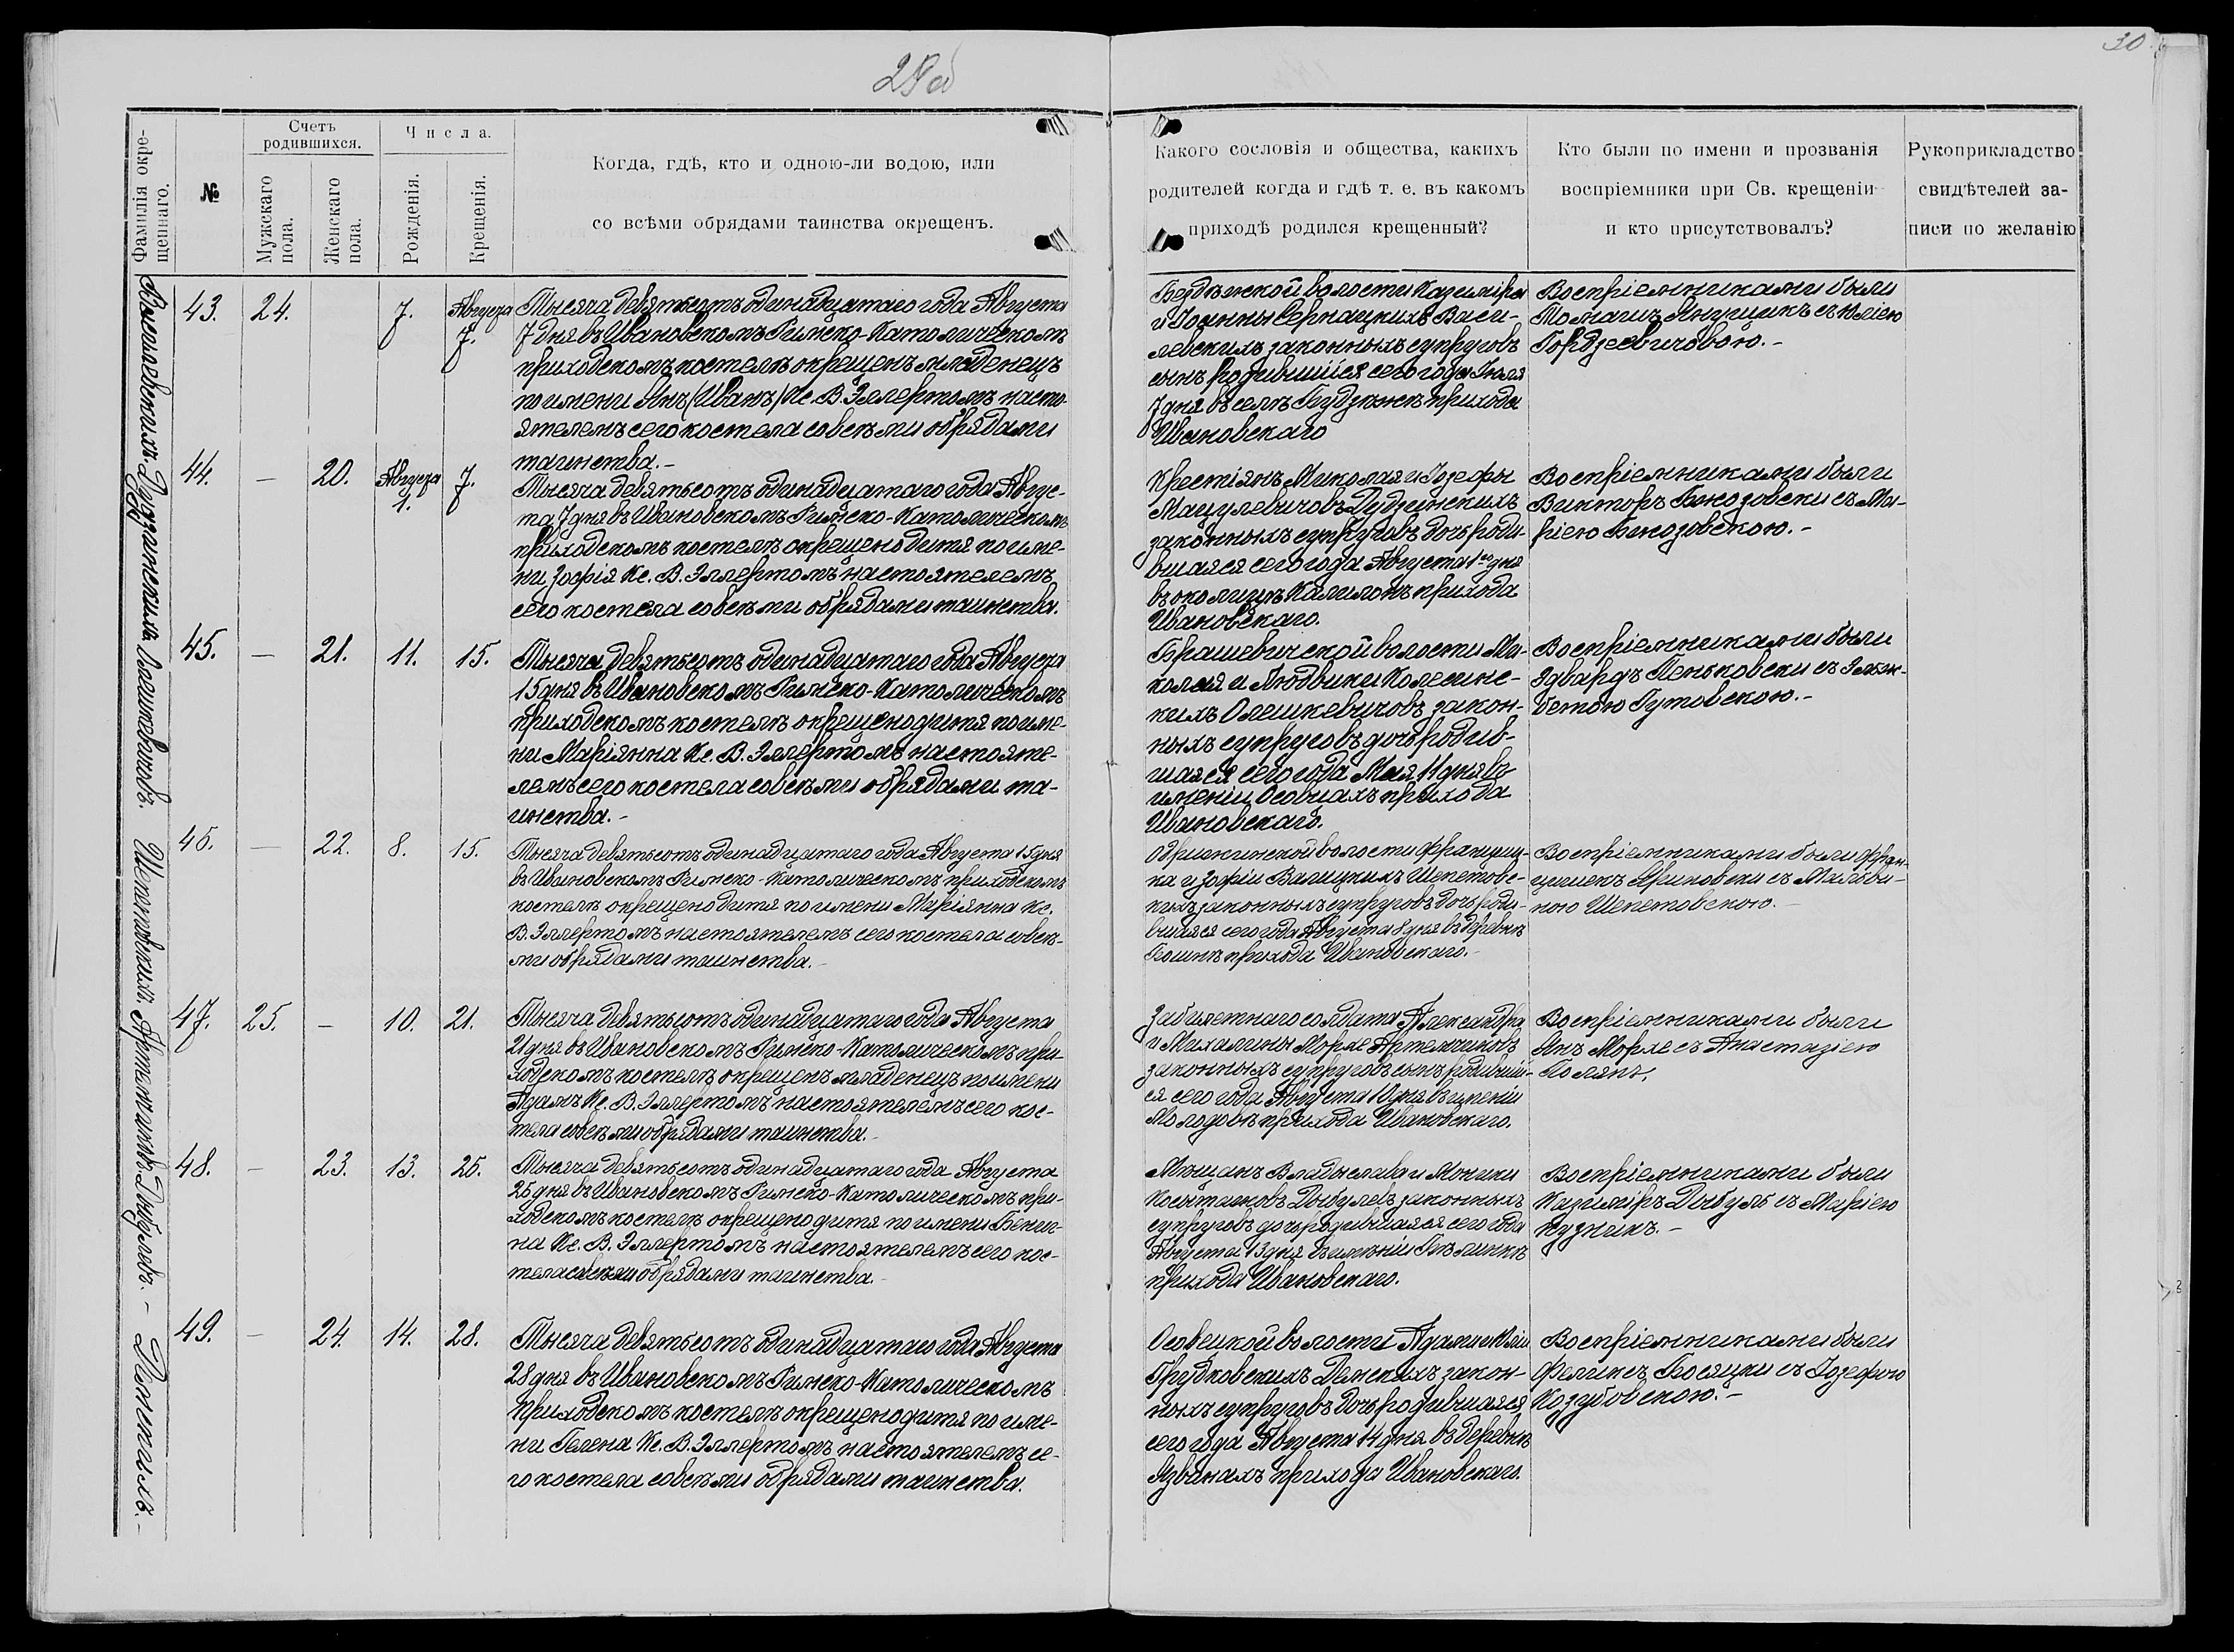 29 об
30.
Фамилія окре-
щеннаго.
№
Счетъ
родившихся.
Мужскаго
пола.
Женскаго
пола.
Числа.
Рожденія.
Крещенія.
Когда, гдѣ, кто и одною-ли водою, или
со всѣми обрядами таинства окрещенъ.
Какого сословія и общества, какихъ
родителей когда и гдѣ т. е. въ какомъ
приходѣ родился крещенный?
Кто были по имени и прозванія
воспріемники при Св. крещеніи
и кто присутствовалъ?
Рукоприкладство
свидѣтелей за-
писи по желанію
43. 24. 7. Августа
7.
Тысяча девятьсотъ одинадцатаго года Августа
7 дня въ Ивановскомъ Римско-Католическомъ
приходскомъ костелѣ окрещенъ младенецъ
по имени Янъ (Иванъ) Кс. В. Эллертомъ насто-
ятелемъ сего костела со всѣми обрядами
таинства.-
волости Казиміра
и Іоанны Сернацкихъ Васи-
левскихъ законныхъ супруговъ
сынъ родившійся сего года Іюля
7 дня въ селѣ прихода
Ивановскаго
Воспріемниками были
Томашъ съ
Гордзеевичовою.-
44. - 20. Августа
1. 7.
Тысяча девятьсотъ одинадцатаго года Авгус-
та 7 дня въ Ивановскомъ Римско-Католическомъ
приходскомъ костелѣ окрещено дитя по име-
ни Зофія Кс. В. Эллертомъ настоятелемъ
сего костела со всѣми обрядами таинства.
Крестіянъ Миколая и Іозефы
Мацулевичовъ Дудзинскихъ
законныхъ супруговъ дочь роди-
вшаяся сего года Августа 1го дня
въ околицѣ прихода
Ивановскаго.
Воспріемниками были
Викторъ съ Ма-
ріею
45. - 21. 11. 15.
Тысяча девятьсотъ одинадцатаго года Августа
15 дня въ Ивановскомъ Римско-Католическомъ
приходскомъ костелѣ окрещено дитя по име-
ни Маріянна Кс. В. Эллертомъ настояте-
лемъ сего костела со всѣми обрядами та-
инства.-
Брашевичской волости Ми-
колая и Людвики Колесинс-
кихъ Олешкевичовъ закон-
ныхъ супруговъ дочь родив-
шаяся сего года Мая 11 дня въ
имѣніи Осовцахъ прихода
Ивановскаго.
Воспріемниками были
Эдвардъ Пеньковски съ Эльж-
бетою Гутовскою.-
46. - 22. 8. 15.
Тысяча девятьсотъ одинадцатаго года Августа 15 дня
въ Ивановскомъ Римско-Католическомъ приходскомъ
костелѣ окрещено дитя по имени Маріянна Кс.
В. Эллертомъ настоятелемъ сего костела со всѣ-
ми обрядами таинства.-
волости Францишка
и Зофіи Валицкихъ Шепетовс-
кихъ законныхъ супруговъ дочь роди-
вшаяся сего года Августа 8 дня въ деревнѣ
прихода Ивановскаго.-
Воспріемниками были Фран-
цишекъ съ Мальви-
ною Шепетовскою.-
47. 25. - 10. 21.
Тысяча девятьсотъ одинадцатаго года Августа
21 дня въ Ивановскомъ Римско-Католическомъ при-
ходскомъ костелѣ окрещенъ младенецъ по имени
Адамъ Кс. В. Эллертомъ настоятелемъ сего кос-
тела со всѣми обрядами таинства.-
Забилетнаго солдата Александра
и Михалины Морле Артемчиковъ
законныхъ супруговъ сынъ родившій-
ся сего года Августа 10 дня въ имѣніи
Молодовѣ прихода Ивановскаго.
Воспріемниками были
Янъ Морле съ Анастазіею
48. - 23. 13. 25.
Тысяча девятьсотъ одинадцатаго года Августа
25 дня въ Ивановскомъ Римско-Католическомъ при-
ходскомъ костелѣ окрещено дитя по имени Бениг-
на Кс. В. Эллертомъ настоятелемъ сего кос-
тела со всѣми обрядами таинства.-
Мѣщанъ Владыслава и Моники
Дыбулевъ законныхъ
супруговъ дочь родившаяся сего года
Августа 13 дня въ имѣніи
прихода Ивановскаго.
Воспріемниками были
Казиміръ Дыбуль съ Маріею
Кудзикъ.-
49. - 24. 14. 28.
Тысяча девятьсотъ одинадцатаго года Августа
28 дня въ Ивановскомъ Римско-Католическомъ
приходскомъ костелѣ окрещено дитя по име-
ни Гелена Кс. В. Эллертомъ настоятелемъ се-
го костела со всѣми обрядами таинства.
Осовецкой волости Адама и
Грудковскихъ Денскихъ закон-
ныхъ супруговъ дочь родившаяся
сего года Августа 14 дня въ деревнѣ
Язвинахъ прихода Ивановскаго.
Воспріемниками были
Феликсъ Босяцки съ Іозефою
Козубовскою.-
Василевскихъ. Дудзинскихъ. Олешкевичовъ. Шепетовскихъ. Артемчиковъ. Дыбулевъ.- Денскихъ.-